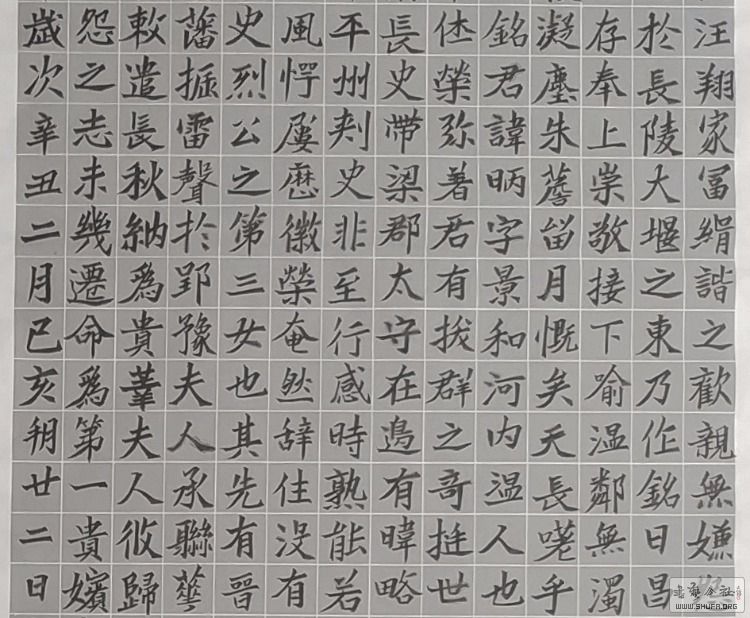 汪翔家冨絹諧之歡親無嫌
於長陵大堰之東乃作銘曰昌
存奉上崇敬接下喻温鄰無濁
凝塵朱薝畄月慨矣天長嗟乎
銘君諱昞字景和河内温人也
休榮弥著君有拔群之奇挺世
長史帶梁郡太守在邊有暐略
平州刾史非至行感時熟能若
風愕屢歷徽榮奄然辞住没有
史烈公之第三女也其先有晉
藩振雷聲於郢豫夫人承聯華
敕遣長秋納為貴華夫人攸歸
怨之志未幾遷命為第一貴嬪
歲次辛丑二月己亥朔廿二日
WWW.SHUFA.ORG